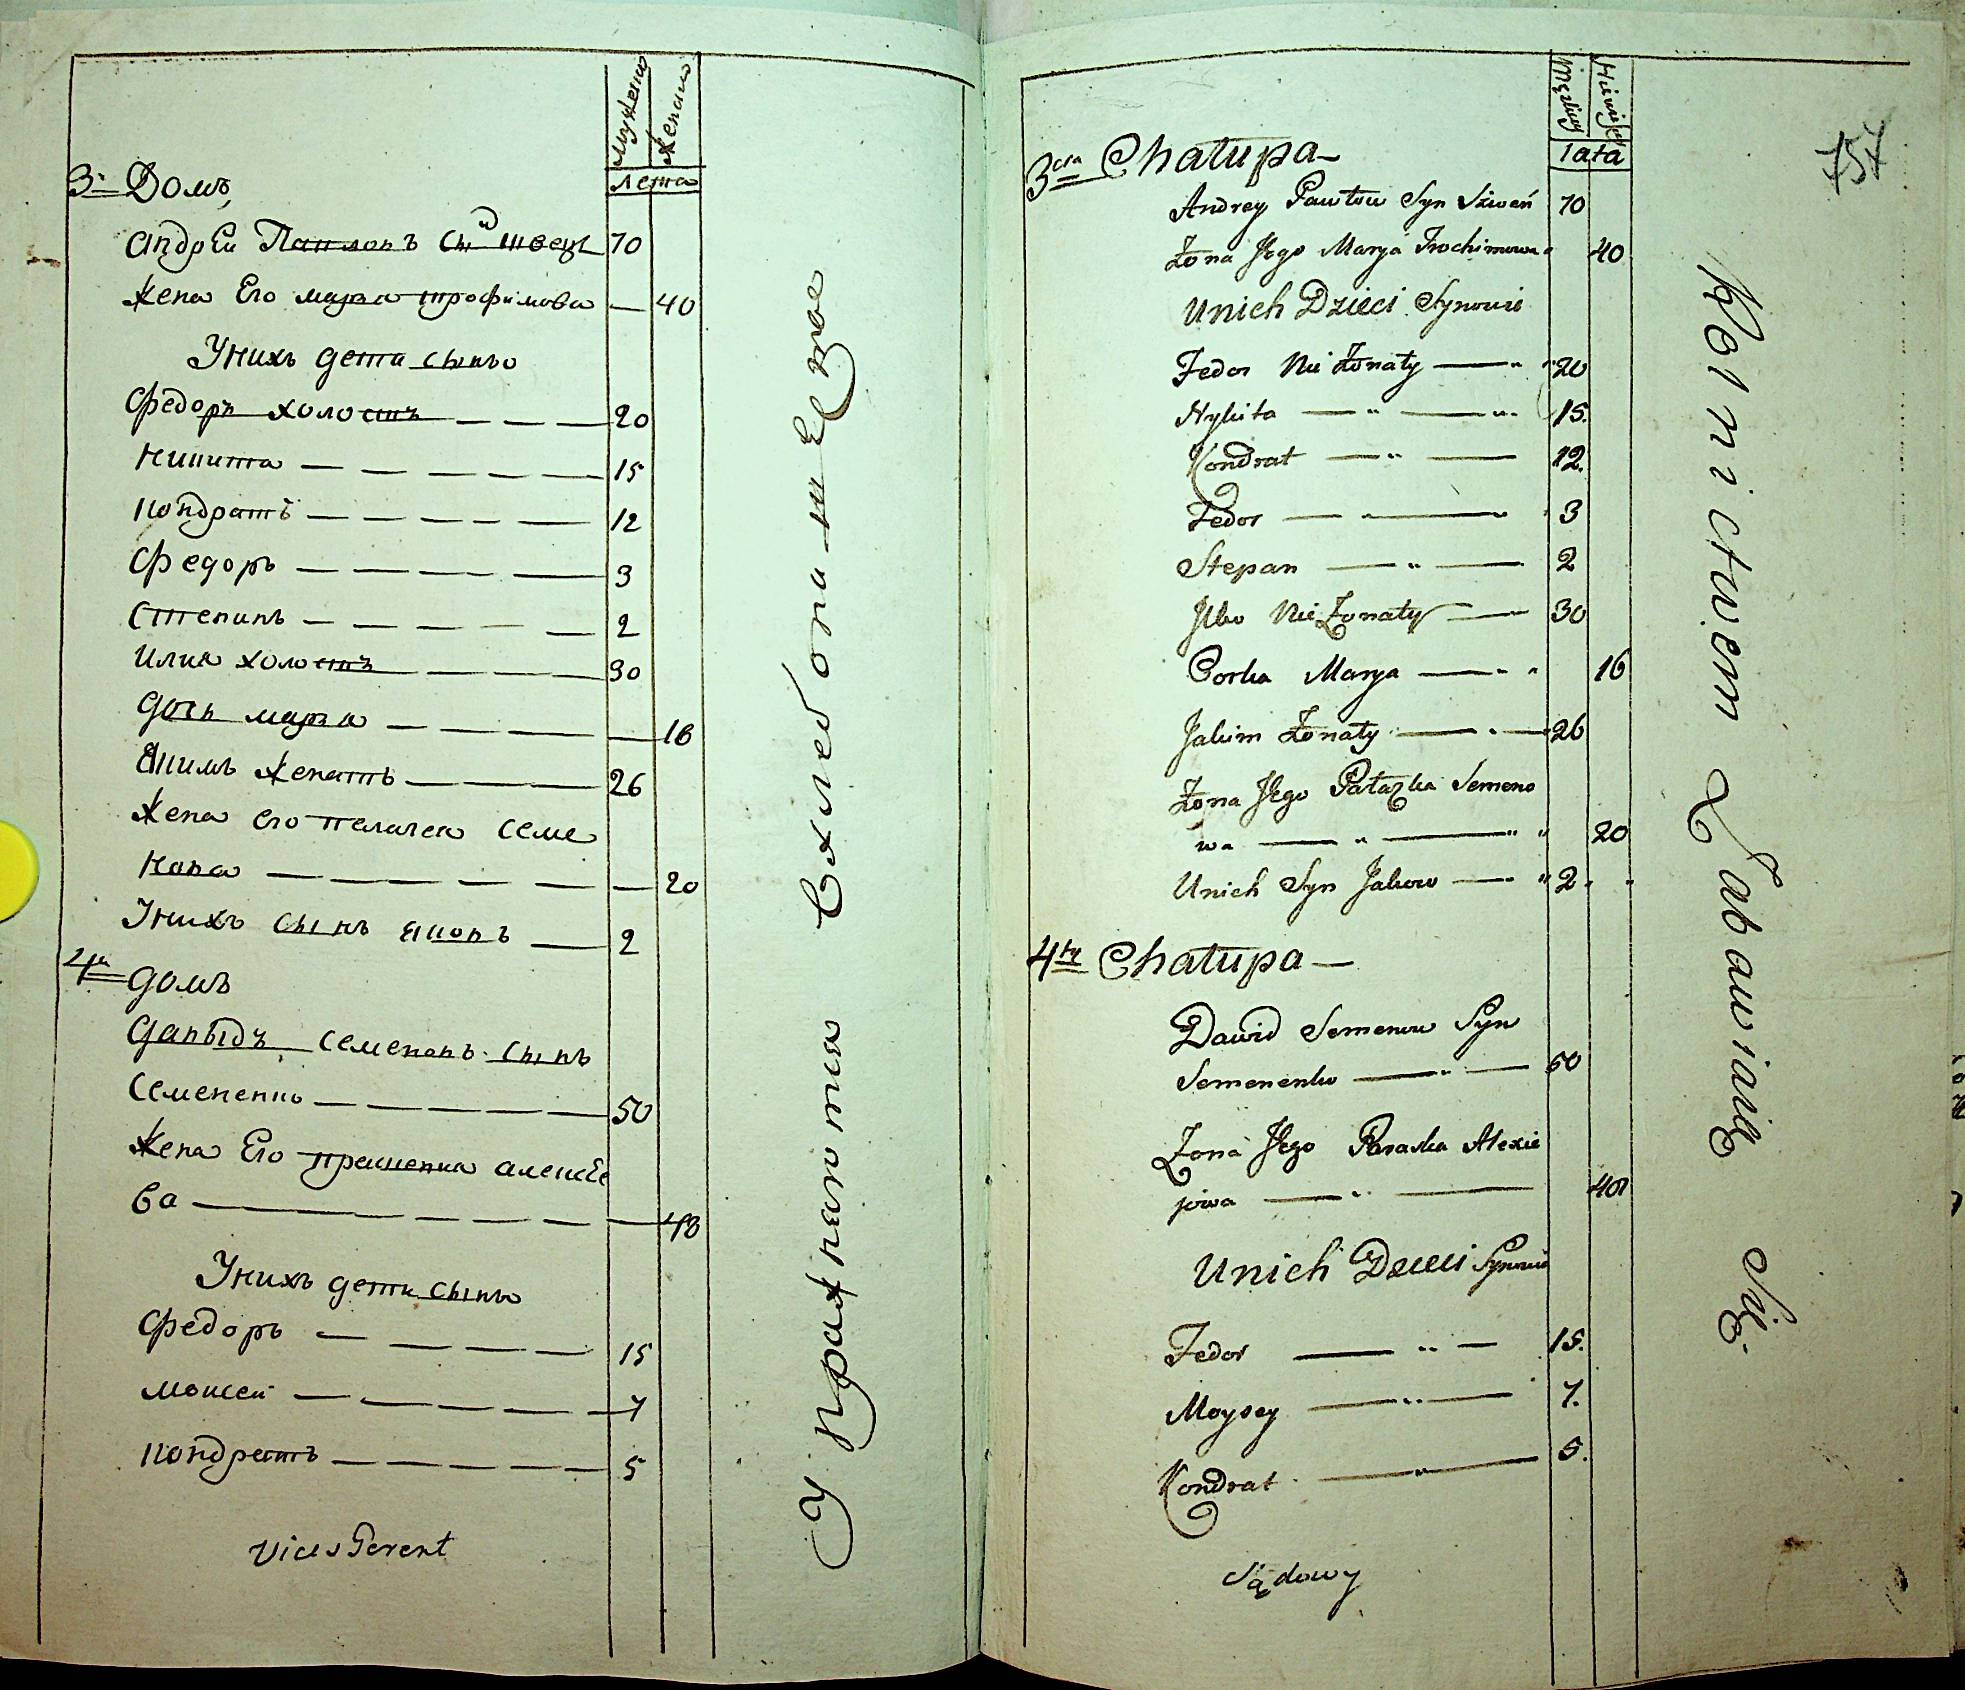 Мужеска
Женска
лета
3й Домъ
андрей Павловъ сын швецъ 70
Жена Его маръя трофимова — 40
Унихъ дети сыны
Федоръ холостъ — — — 20
Никита — — — — — 15
Кондратъ — — — — — 12
Федоръ — — — — 3
Степанъ — — — — — 2
Илия холостъ — — — 30
Дочь маръя — — — — 16
Якимъ женатъ — — — 26
Жена его пелагея Семе
нова — — — — — — 20
Унихъ сынъ яковъ — 2
4й домъ
Давыдъ семеновъ сынъ
Семененко — — — — — 50
Жена Его прасковия алексѣе
ва — — — — — — — 40
Унихъ дети сыны
Федоръ — — — — 15
Моисей — — — — — 7
Кондратъ — — — — — 5
Vices Gerent
Упражняется
Męzkiey
lata
757
3cia Chałupa —
Andrey Pawłow Syn Szweń 70
Żona Jego Marya Trochimowa 40
Unich Dzieci Synowie
Fedor Nie Żonaty — 20
Nykita — " — " 15.
Kondrat — " — 12.
Fedor — " — 3
Stepan — " — 2
Jlko Nie Żonaty — 30
Corka Marya — " 16
Jakim Żonaty — " — 26
Żona Jego Pałazka Semeno
wa — " — " " 20
Unich Syn Jakow — " 2
4ta Chałupa —
Dawid Semenow Syn
Semenenko — " — 50
Żona Jego Paraska Alexie
jowa — " — 40
Unich Dzieci Synowie
Fedor — " — 15.
Moysey — " — 7.
Kondrat — " — 5.
Sądowy
Rolnictwem Zabawiaią Się.